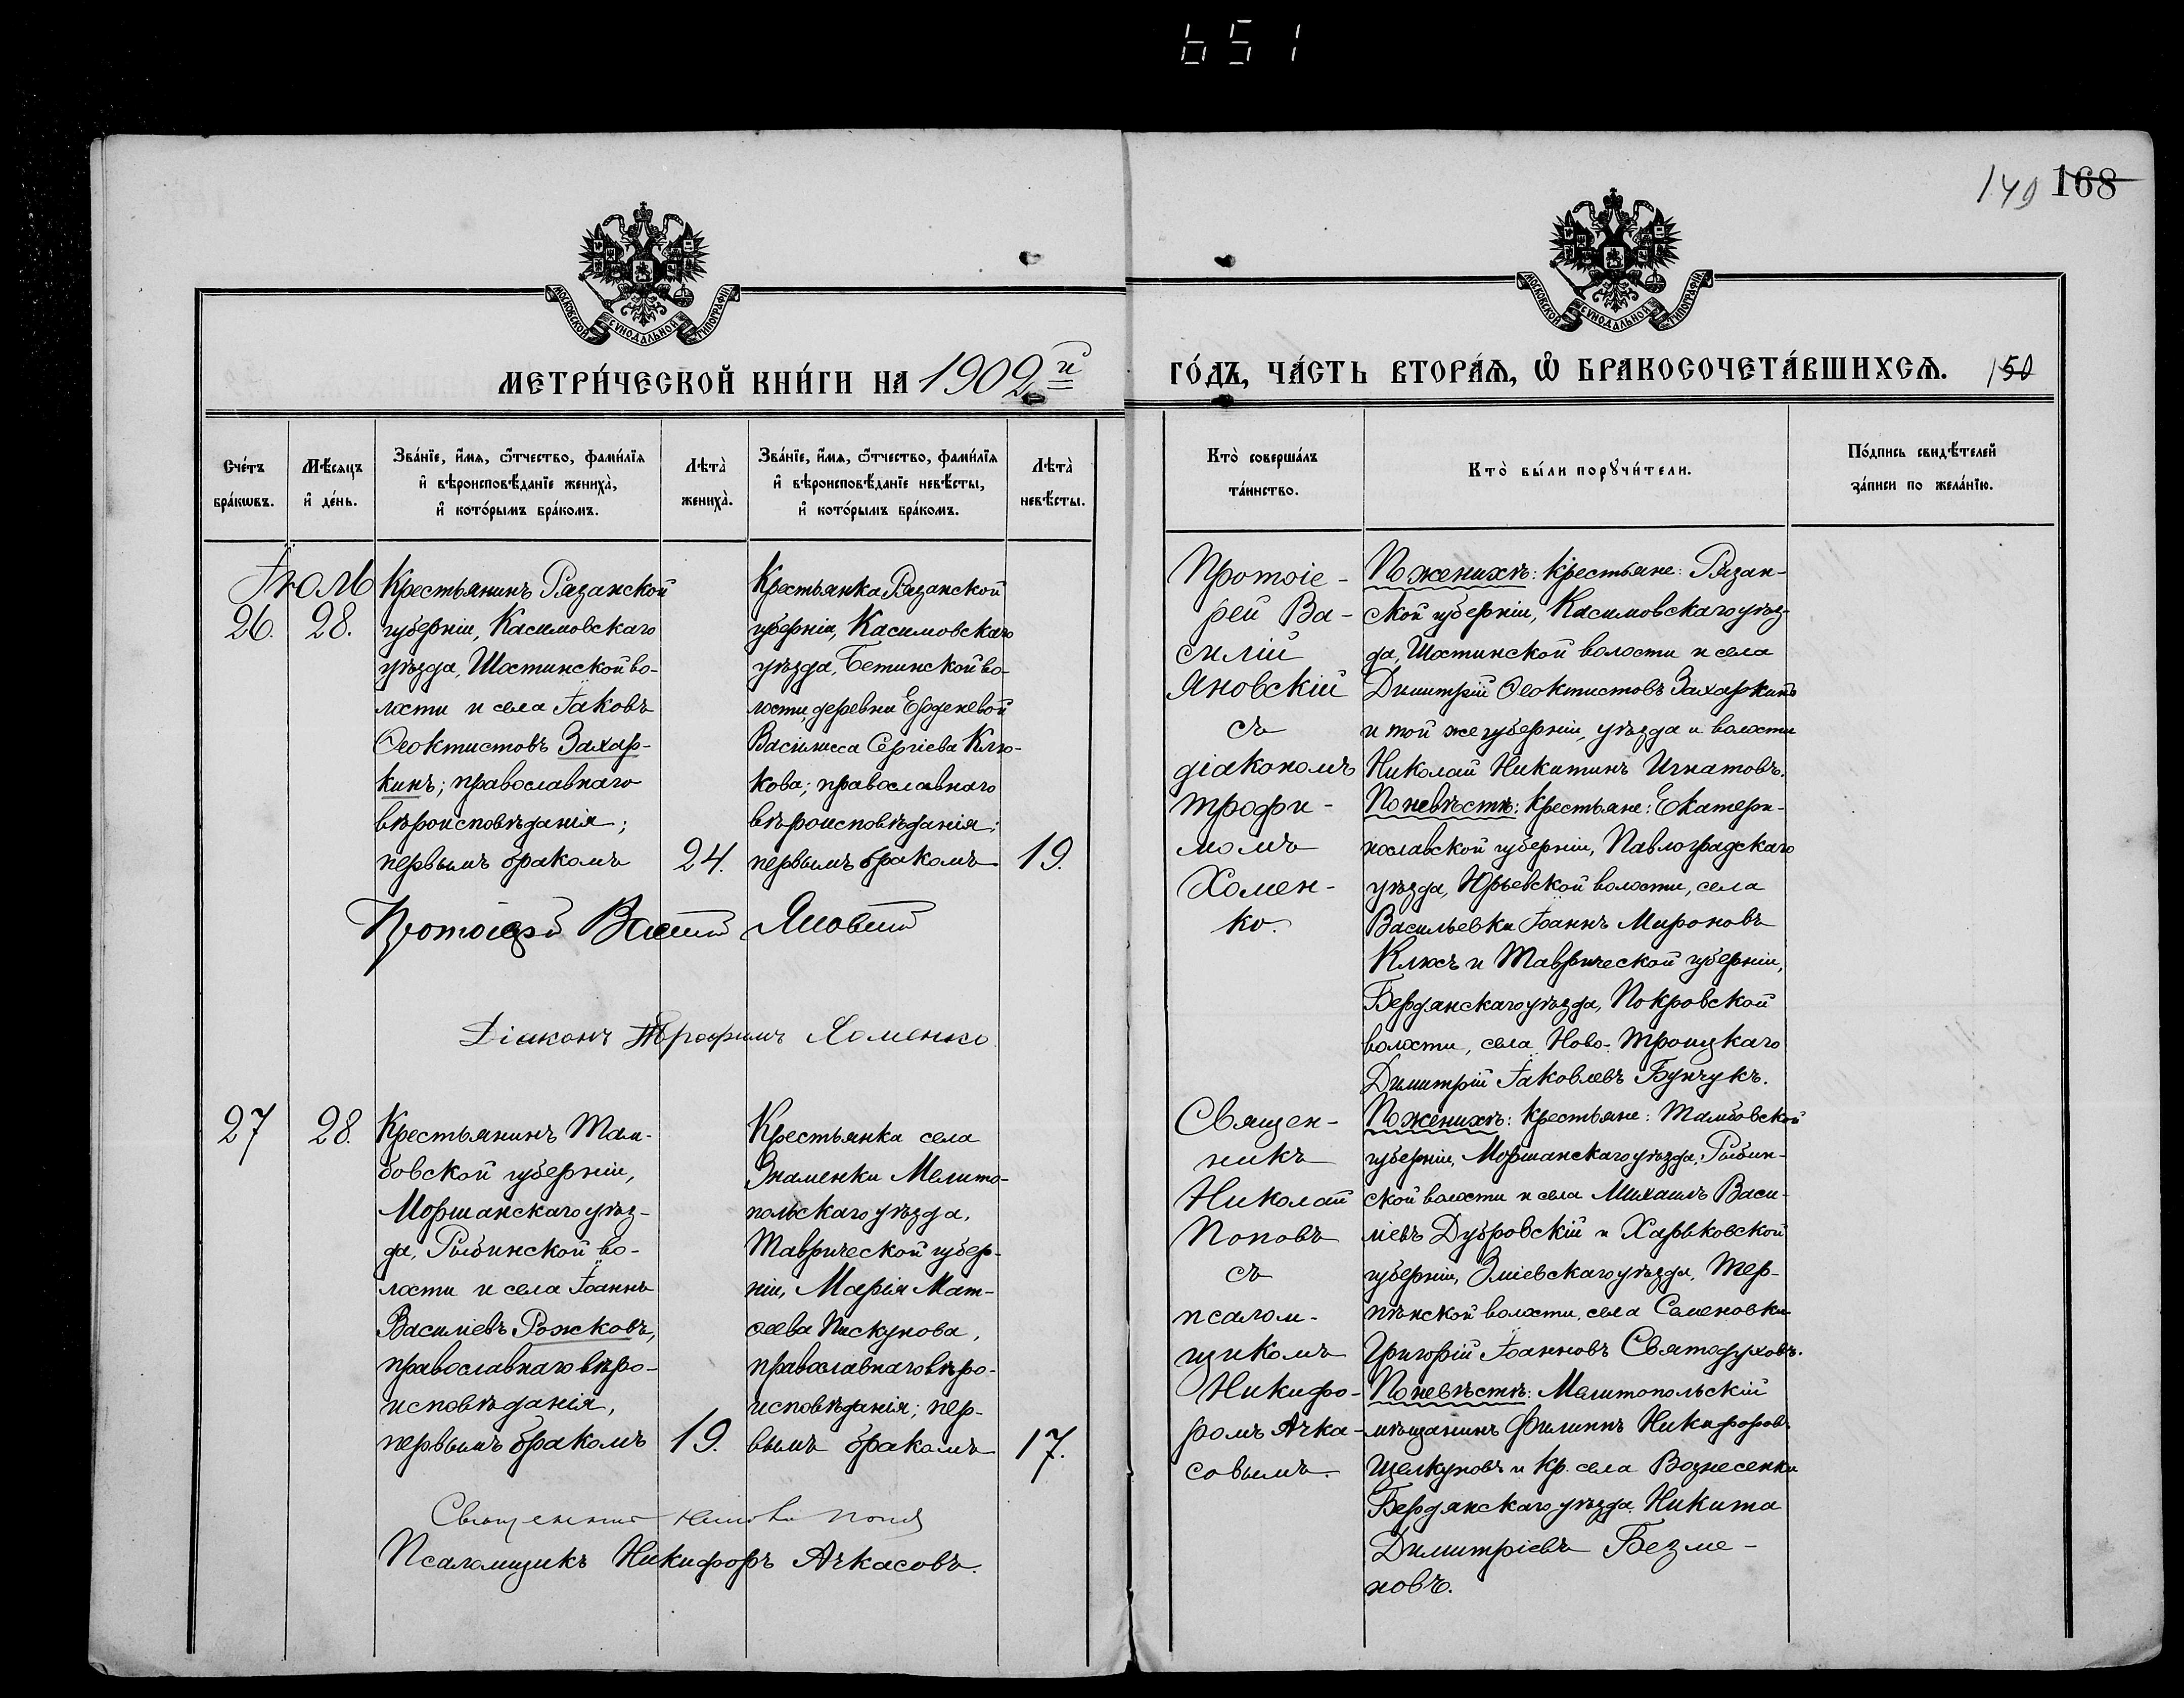 651
149 168
МОСКОВСКОЙ СѴНОДАЛЬНОЙ ТИПОГРАФІИ
МОСКОВСКОЙ СѴНОДАЛЬНОЙ ТИПОГРАФІИ
МЕТРИ́ЧЕСКОЙ КНИ́ГИ НА 1902й
ГО́ДЪ, ЧА́СТЬ ВТОРА́Ѧ, Ѽ БРАКОСОЧЕТА́ВШИХСѦ. 150
Сче́тъ
бра́кѡвъ.
Мѣ́сяцъ
и҆ де́нь.
Зва́нїе, и҆́мѧ, ѻ҆́тчество, фами́лїѧ
и҆ вѣроисповѣ́данїе жениха̀,
и҆ кото́рымъ бра́комъ.
Лѣта̀
жениха̀.
Зва́нїе, и҆́мѧ, ѻ҆́тчество, фами́лїѧ
и҆ вѣроисповѣ́данїе невѣ́сты,
и҆ кото́рымъ бра́комъ.
Лѣта̀
невѣ́сты.
Кто̀ соверша́лъ
та́инство.
Кто̀ бы́ли порꙋчи́тели.
По́дпись свидѣ́телей
за́писи по жела́нїю.
Іюль
26.
28.
Крестьянинъ Рязанской
губерніи, Касимовскаго
уѣзда, Шостинской во-
лости и села Іаковъ
Ѳеоктистовъ Захар-
кинъ; православнаго
вѣроисповѣданія;
первымъ бракомъ
24.
Крестьянка Рязанской
губерніи, Касимовскаго
уѣзда, Бетинской во-
лости, деревни Ерденевой
Василисса Сергіева Клю-
кова; православнаго
вѣроисповѣданія;
первымъ бракомъ
19.
Протоіерей Василій Яновскій
Діаконъ Трофимъ Хоменко
Протоіе-
рей Ва-
силій
Яновскій
съ
діакономъ
Трофи-
момъ
Хомен-
ко.
По женихѣ: крестьяне: Рязан-
ской губерніи, Касимовскаго уѣз-
да, Шостинской волости и села
Димитрій Ѳеоктистовъ Захаркинъ
и той же губерніи, уѣзда и волости
Николай Никитинъ Игнатовъ.
По невѣстѣ: крестьяне: Екатери-
нославской губерніи, Павлоградскаго
уѣзда, Юрьевской волости, села
Васильевки Іоаннъ Мироновъ
Клюсъ и Таврической губерніи,
Бердянскаго уѣзда, Покровской
волости, села Ново-Троицкаго
Димитрій Іаковлевъ Бунчукъ.
27
28.
Крестьянинъ Там-
бовской губерніи,
Моршанскаго уѣз-
да, Рыбинской во-
лости и села Іоаннъ
Василіевъ Рожковъ,
православнаго вѣро-
исповѣданія,
первымъ бракомъ
19.
Крестьянка села
Знаменки Мелито-
польскаго уѣзда,
Таврической губер-
ніи, Марія Мат-
ѳеева Пискунова,
православнаго вѣро-
исповѣданія; пер-
вымъ бракомъ
17.
Священникъ Николай Поповъ
Псаломщикъ Никифоръ Ачкасовъ.
Священ-
никъ
Николай
Поповъ
съ
псалом-
щикомъ
Никифо-
ромъ Ачка-
совымъ.
По женихѣ: крестьяне: Тамбовской
губерніи, Моршанскаго уѣзда, Рыбин-
ской волости и села Михаилъ Васи-
ліевъ Дубровскій и Харьковской
губерніи, Зміевскаго уѣзда, Тер-
нѣнской волости, села Семеновки
Григорій Іоанновъ Святодуховъ.
По невѣстѣ: Мелитопольскій
мѣщанинъ Филиппъ Никифоровъ
Щелкуновъ и кр. села Вознесенки
Бердянскаго уѣзда Никита
Димитріевъ Безме-
новъ.